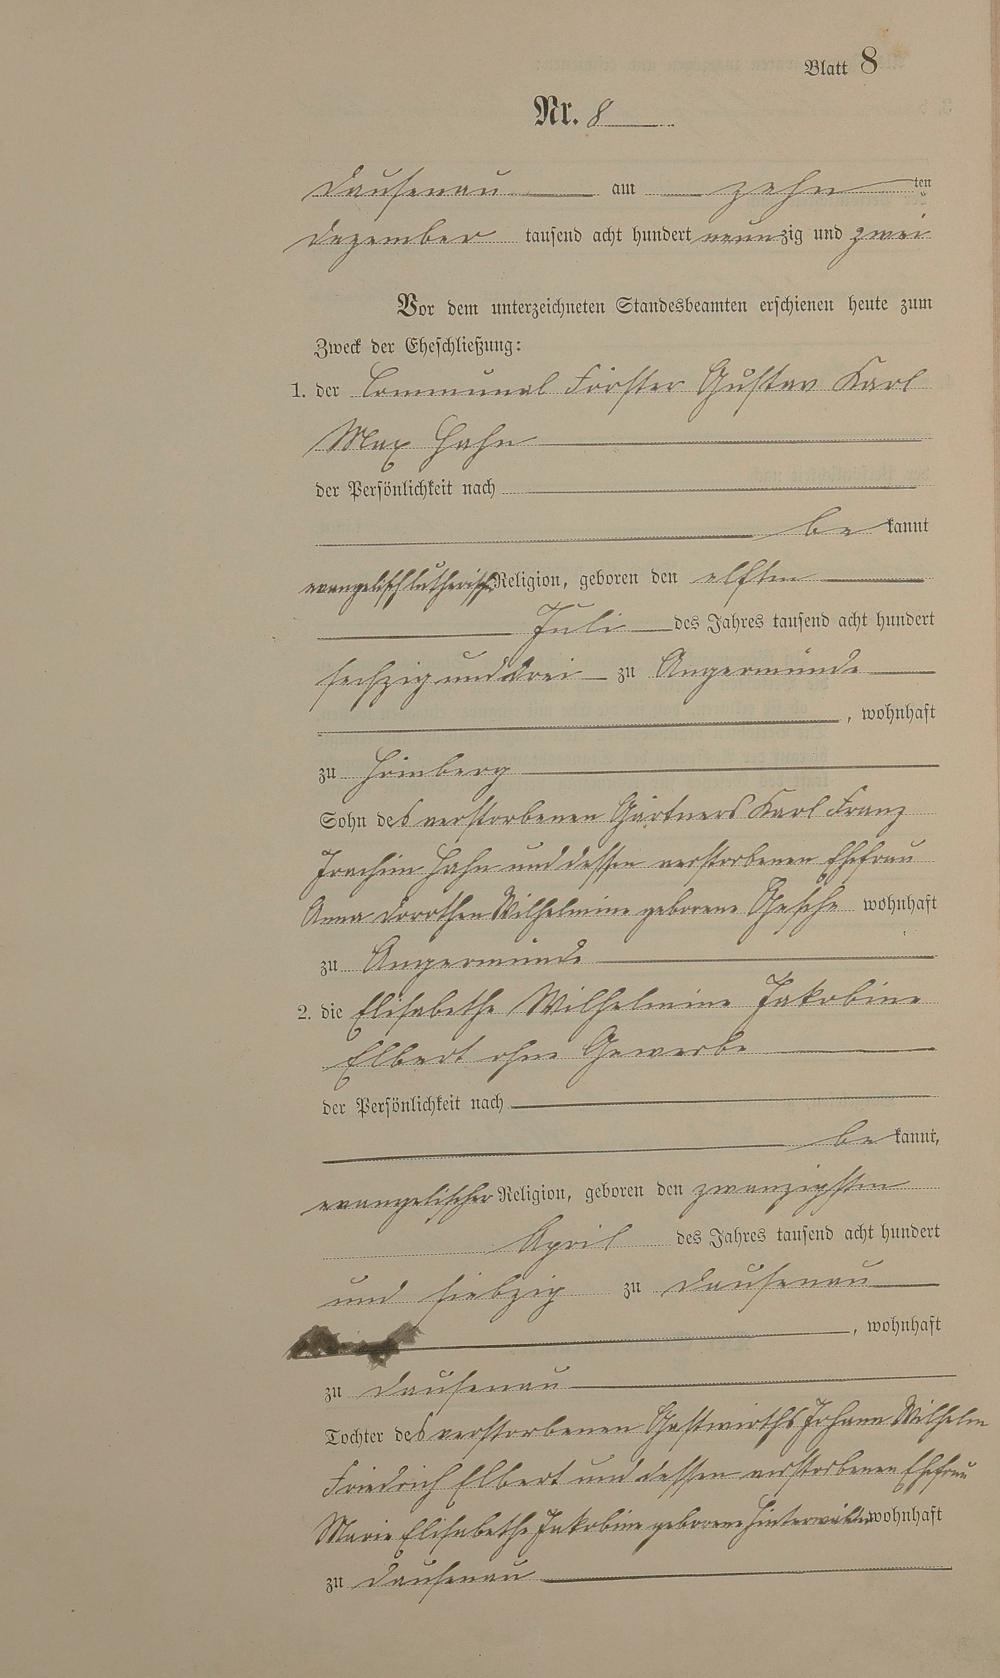 Blatt 8
Nr. 8
Dausenau am zehnten
Dezember tausend acht hundert neunzig und zwei
Vor dem unterzeichneten Standesbeamten erschienen heute zum
Zweck der Eheschließung:
1. der Communal Förster Gustav Karl
Max Hahn
der Persönlichkeit nach
bekannt
evangelischlutherisch Religion, geboren den elften
Juli des Jahres tausend acht hundert
sechzig und drei zu Angermünde
, wohnhaft
zu Hömberg
Sohn des verstorbenen Gärtners Karl Franz
Joachim Hahn und dessen verstorbenen Ehefrau
Anna Dorothea Wilhelmine geborene wohnhaft
zu Angermünde
2. die Elisabethe Wilhelmine Jakobine
Elbert ohne Gewerbe
der Persönlichkeit nach
bekannt,
evangelischer Religion, geboren den zwanzigsten
April des Jahres tausend acht hundert
und siebzig zu Dausenau
, wohnhaft
zu Dausenau
Tochter des verstorbenen Gastwirths Johann Wilhelm
Friedrich Elbert und dessen verstorbenen Ehefrau
Marie Elisabethe Jakobine geborene wohnhaft
zu Dausenau